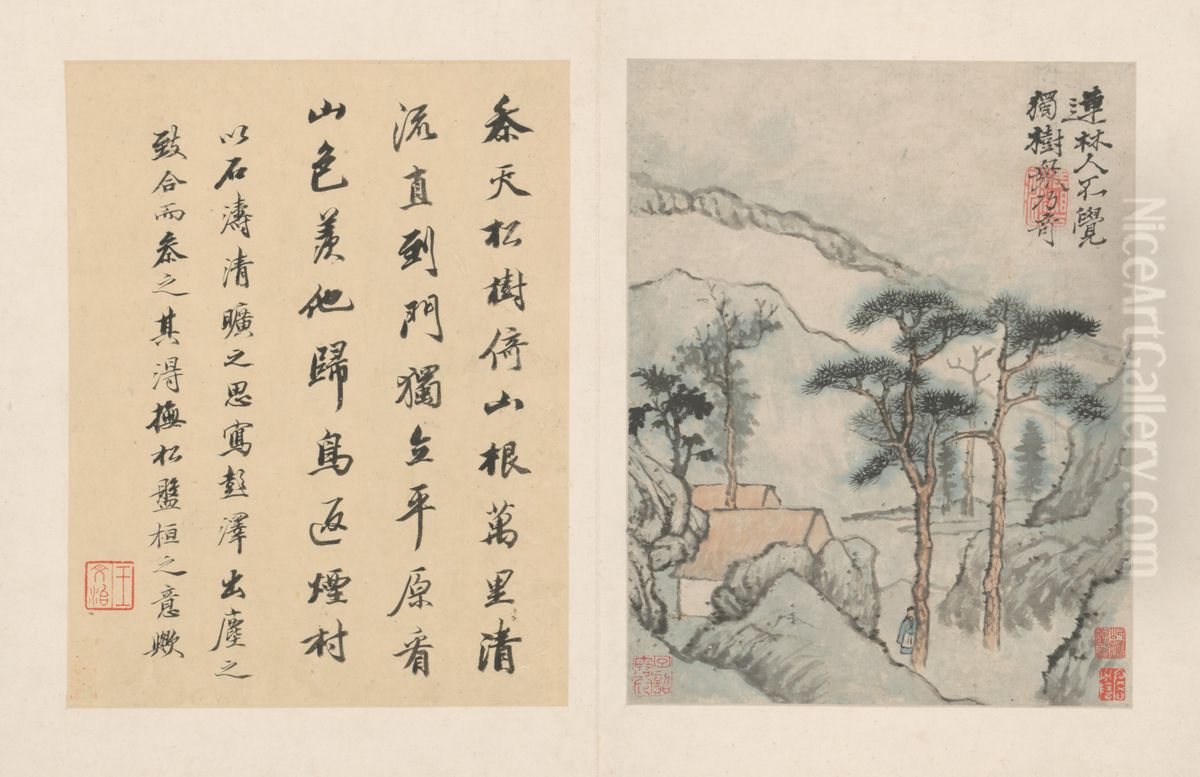 連林人不覺
獨樹眾乃奇
叅天松樹倚山根萬里清
流直到門獨立平原看
山色羨他歸鳥返煙村
以石濤清曠之思寫彭澤出塵之
致合而叅之其得撫松盤桓之意歟
王文治
NiceArtGallery.com